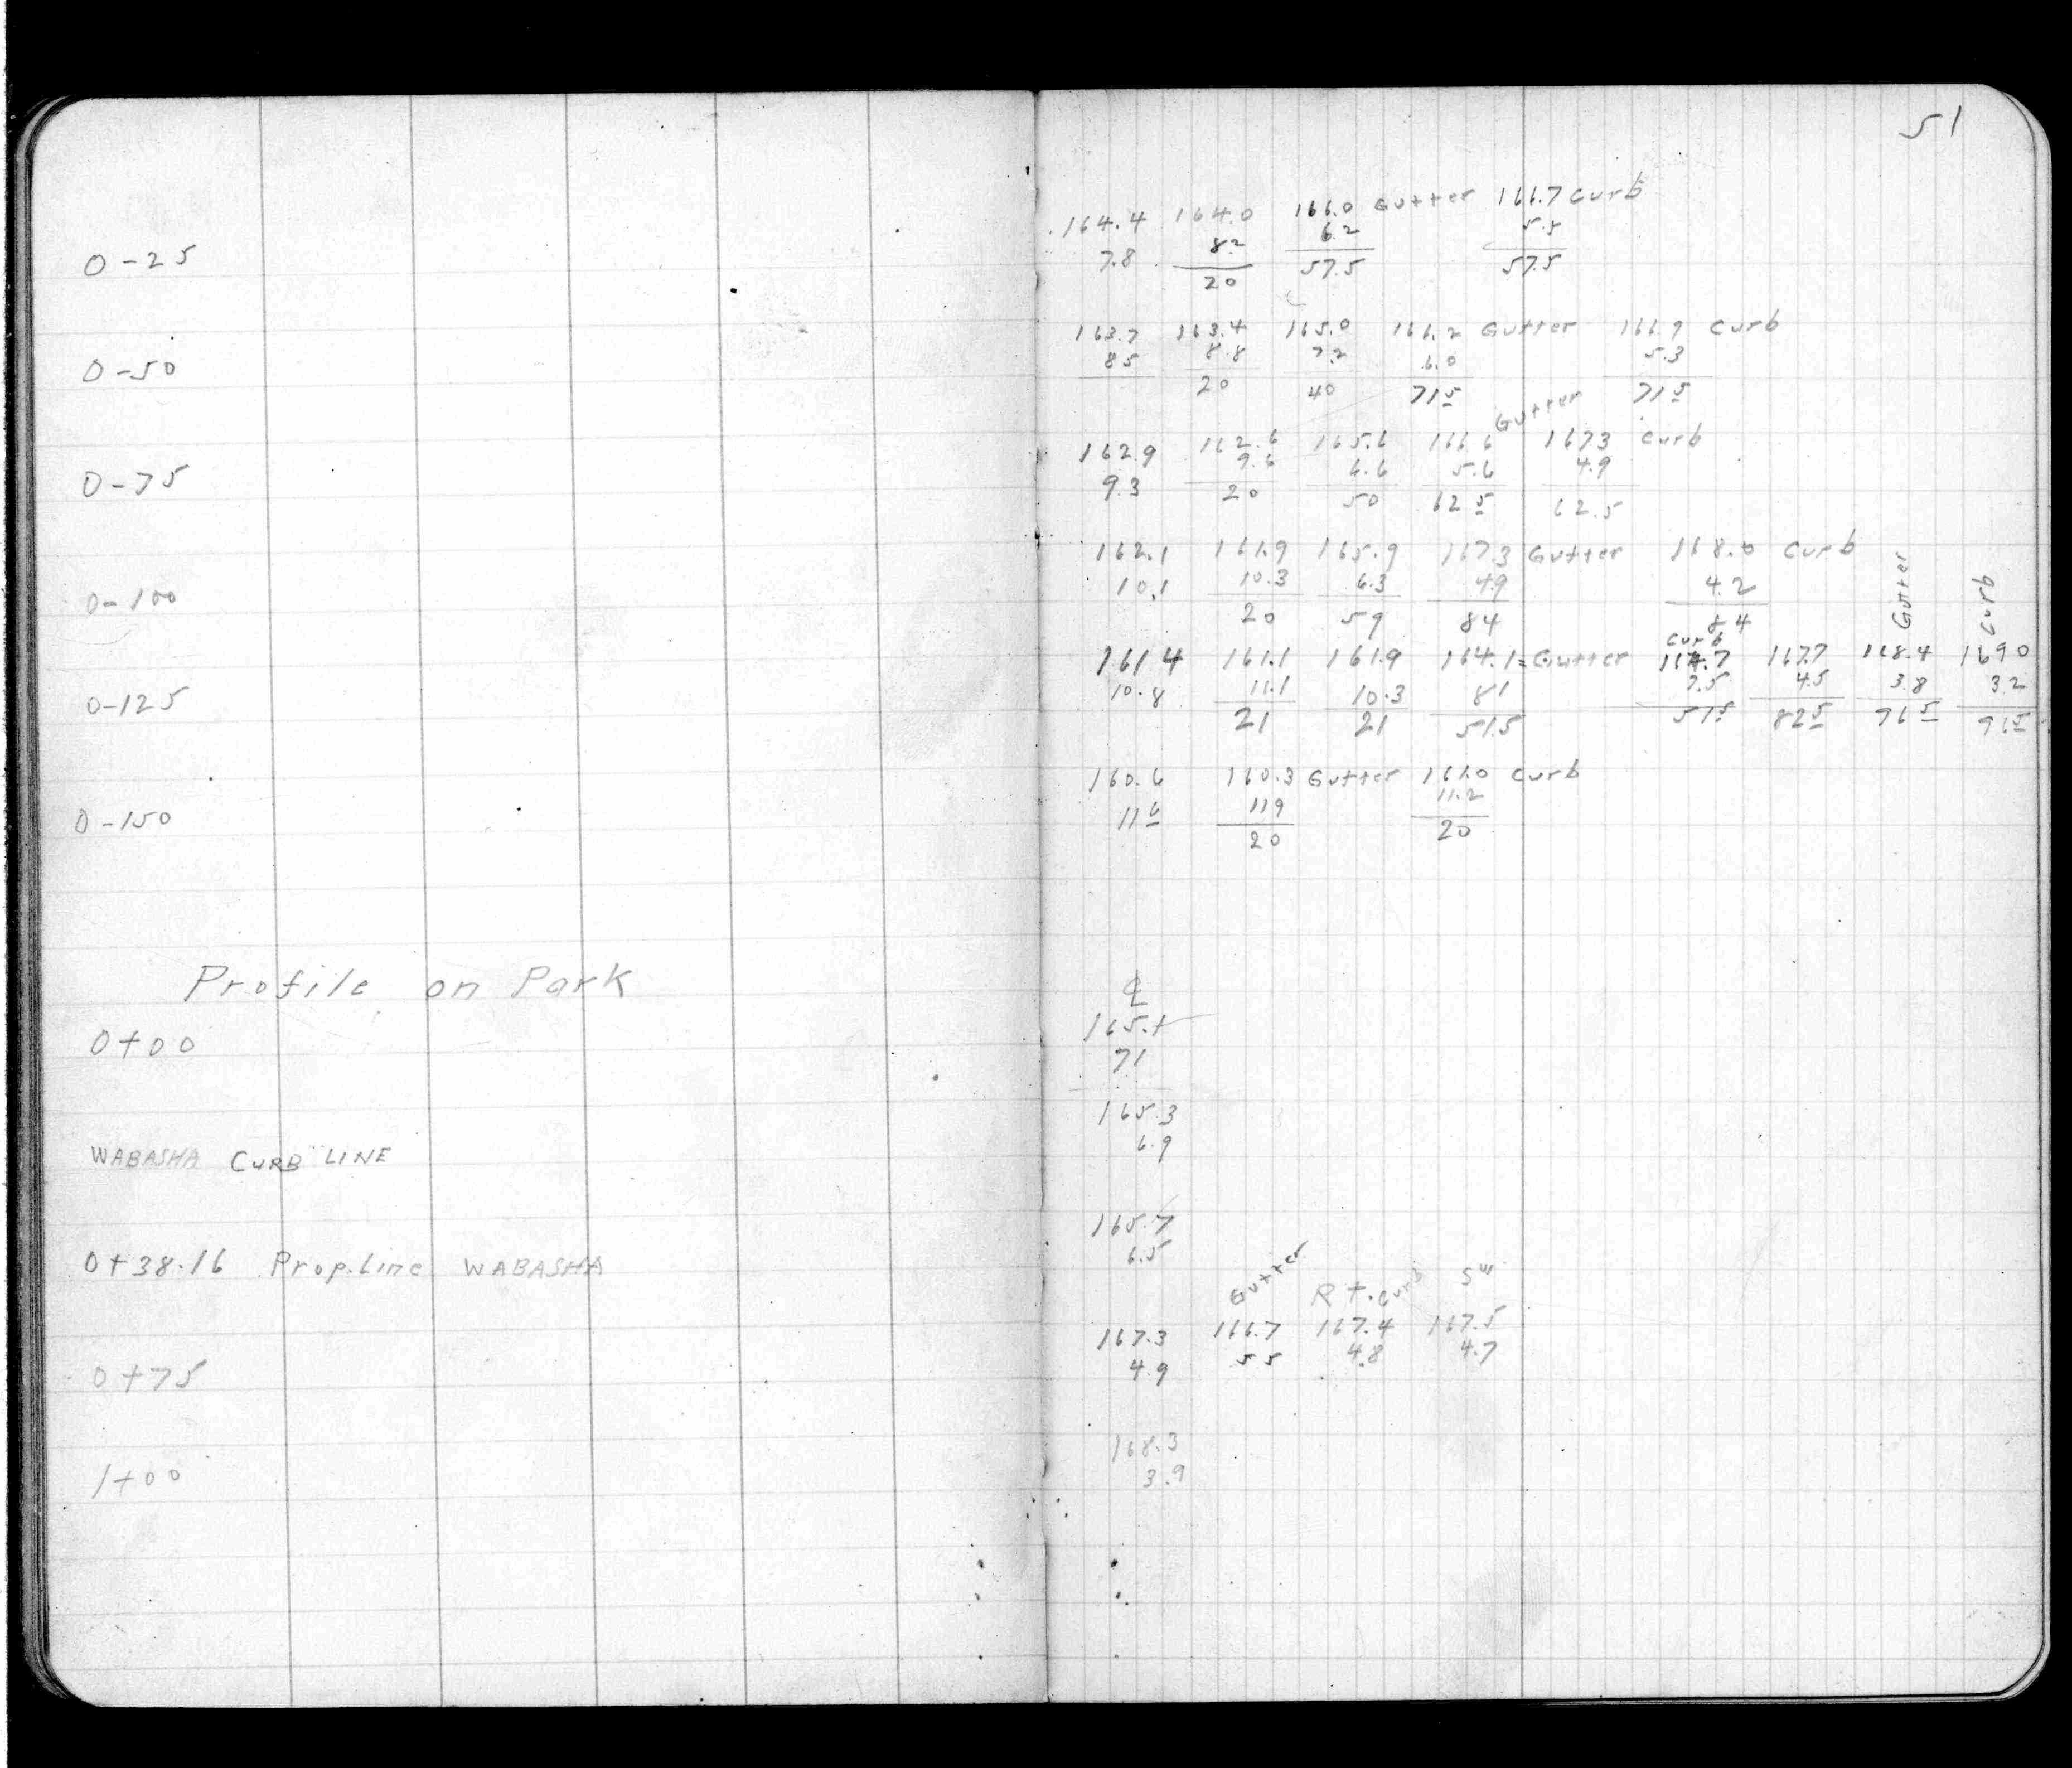 51
164.4 164.0 166.0 Gutter 166.7 Curb
0-25 7.8 8.2 6.2 5.5
20 57.5 57.5
163.7 163.4 165.0 166.2 Gutter 166.9 Curb
0-50 8.5 8.8 7.2 6.0 5.3
20 40 71.5 71.5
Gutter
162.9 162.6 165.6 166.6 167.3 Curb
0-75 9.3 9.6 6.6 5.6 4.9
20 50 62.5 62.5
162.1 161.9 165.9 167.3 Gutter 168.0 Curb
0-100 10.1 10.3 6.3 4.9 4.2
20 59 84 84
Curb Gutter Curb
161.4 161.1 161.9 164.1 = Gutter 164.7 167.7 168.4 169.0
0-125 10.8 11.1 10.3 8.1 7.5 4.5 3.8 3.2
21 21 51.5 51.5 82.5 96.5 96.5
160.6 160.3 Gutter 161.0 Curb
0-150 11.6 11.9 11.2
20 20
Profile on Park ℄
0+00 165.1
7.1
165.3
WABASHA CURB LINE 6.9
165.7
0+38.16 Prop. Line WABASHA 6.5
Gutter Rt. Curb SW
167.3 166.7 167.4 167.5
0+75 4.9 5.5 4.8 4.7
168.3
1+00 3.9